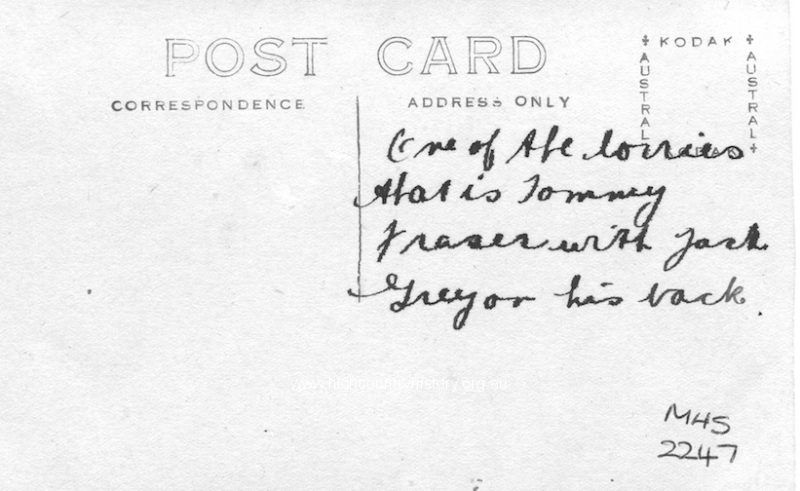 POST CARD
CORRESPONDENCE
ADDRESS ONLY
KODAK
AUSTRAL
AUSTRAL
One of the lorries
that is Tommey
Fraser with Jack
Grey on his back.
www.highcountryhistory.org.au
MHS
2247